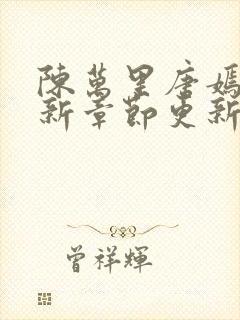 陳萬里唐嫣
新章節更新
曾祥輝